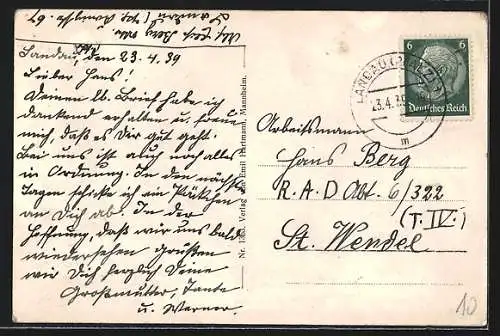 Landau, den 23.4.39
Lieber Hans!
Deinen lb. Brief habe ich
dankend erhalten u. freue
mich, daß es Dir gut geht.
Bei uns ist auch noch alles
in Ordnung. In den nächsten
Tagen schicke ich ein Päckchen
an Dich ab. In der
Hoffnung, daß wir uns bald
wiedersehen grüßen
wir Dich herzlich Deine
Großmutter, Tante
u. Werner.
Verlag Emil Hartmann, Mannheim.
LANDAU (PFALZ)
23.4.39
m
6 6
Deutsches Reich
Arbeitsmann
Hans Berg
R.A.D Abt. 6/322
(T.IV.)
St. Wendel
10